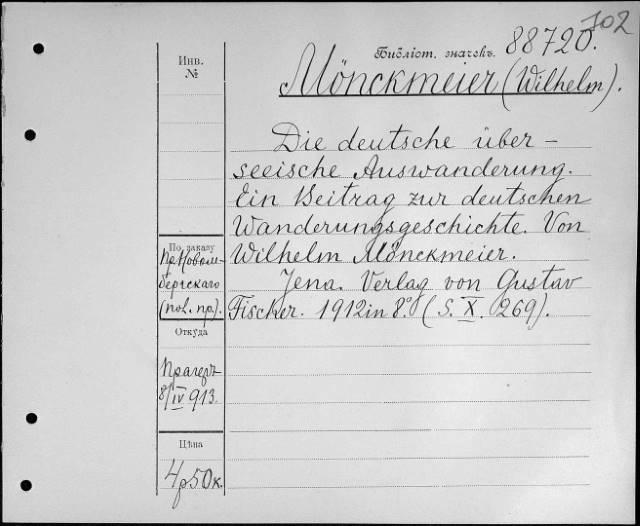 102
Библіот. значекъ. 88720.
Инв.
№
Mönckmeier (Wilhelm).
Die deutsche über-
seeische Auswanderung.
Ein Beitrag zur deutschen
Wanderungsgeschichte. Von
Wilhelm Mönckmeier.
Jena. Verlag von Gustav
Fischer. 1912 in 8° (S. X. 269).
По заказу
пр. Новом-
бергскаго
(пол. пр.).
Откуда
Прагеръ
8/IV 913.
Цѣна
4р50к.